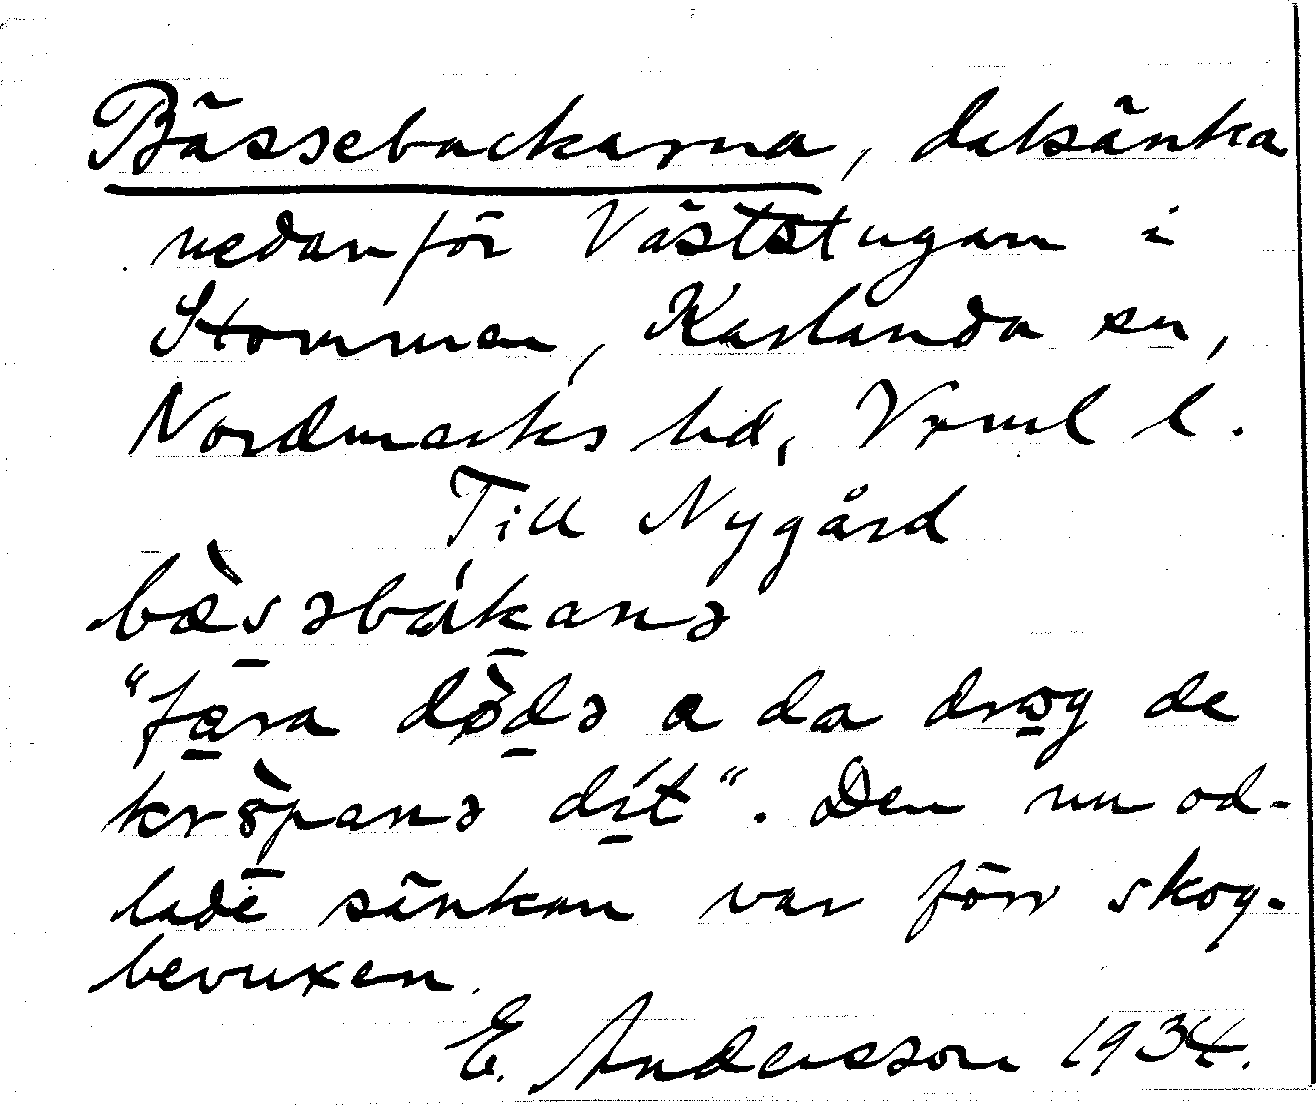 Bässebackarna, dalsänka
nedanför Väststugan i
Stommen, Karlanda sn,
Nordmarks hd, Vrml l.
Till Nygård
bæ̀səbákanə
"færa dø̀də a da drog de
krö̀panə dít". Den nu od-
lade sänkan var förr skog-
bevuxen.
E. Andersson 1934.